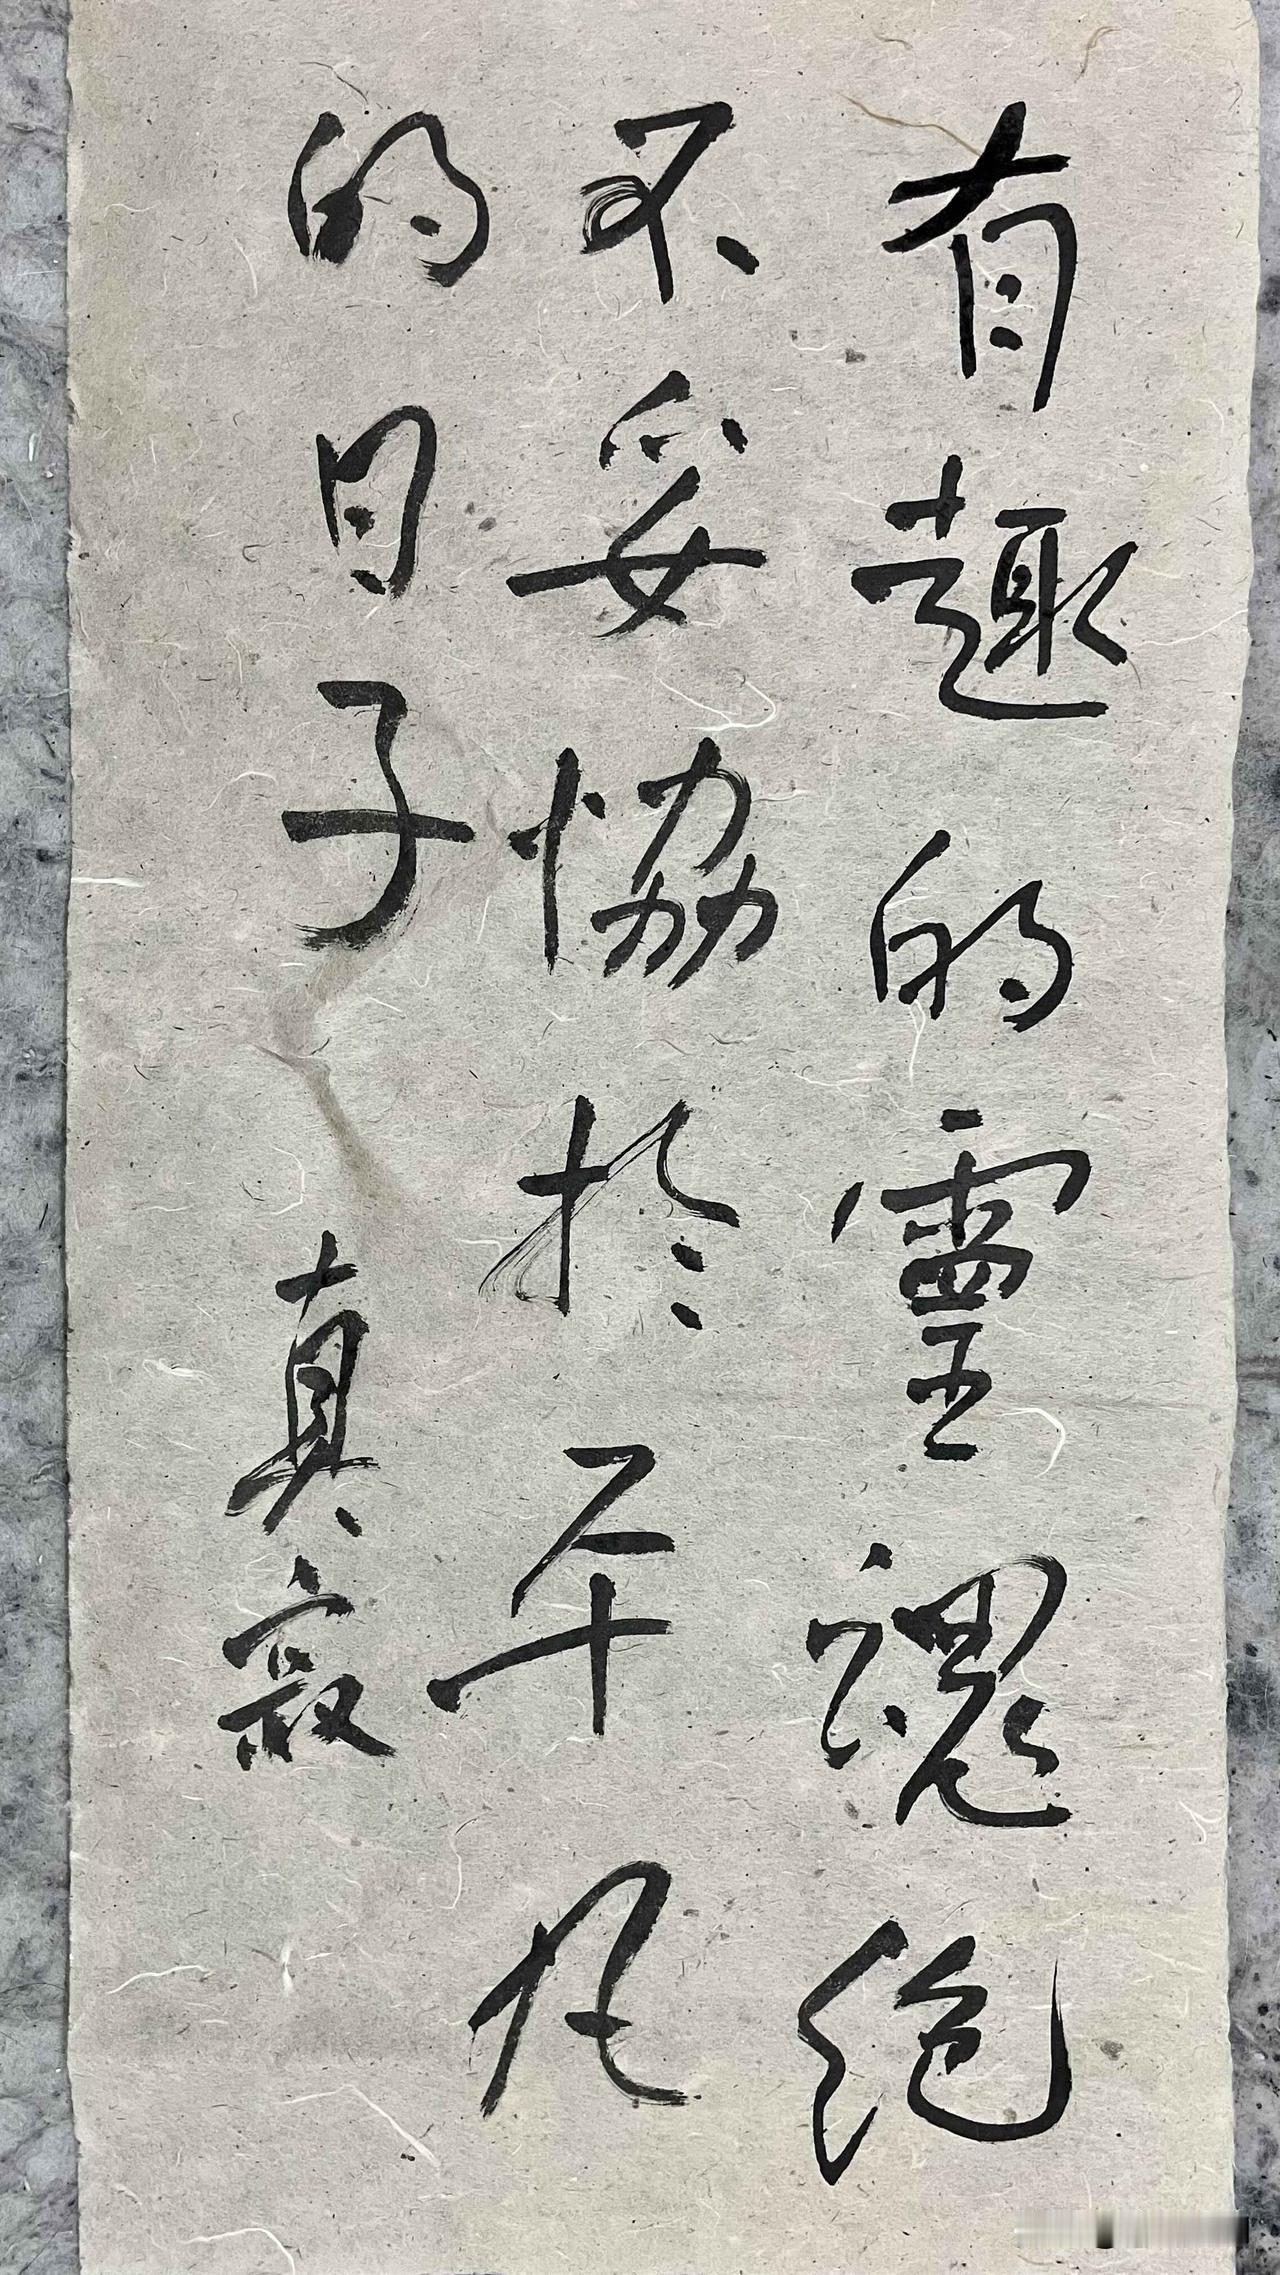 有趣的靈魂絕
不妥協於平凡
的日子 真寂